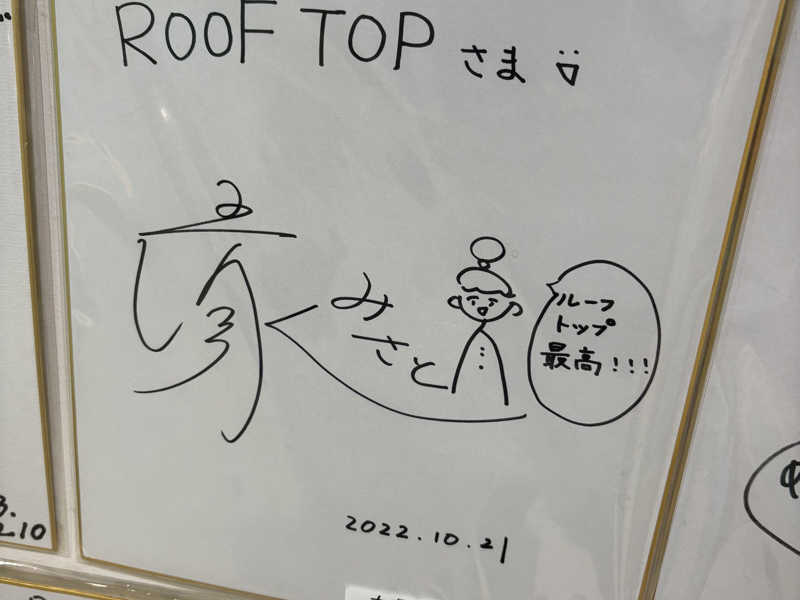 ROOF TOP さま
みさと
ルーフ
トップ
最高!!!
2022.10.21
2.10